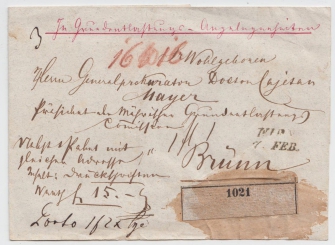 In Grundentlastungs-Angelegenheiten
3
16616
Wohlgeboren
Herrn Generalprokurator Doctor Cajetan
Mayer
Präsident der Mährischen Grundentlastungs
Comission
Nebst 1 Paket mit
gleicher Adresse
Inhalt: Druckschriften
Werth f 15.-
Brünn
7. FEB.
1021
Porto